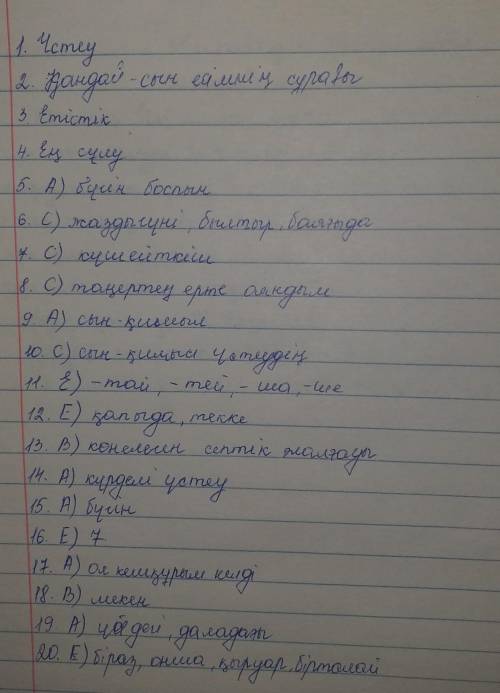 1. Үстеу
2. Қандай - сын есімнің сұрағы
3. Етістік
4. Ең сұлу
5. А) бүгін боспын
6. С) жаздыгүні, былтыр, баяғыда
7. С) күшейткіш
8. С) таңертең ерте ояндым
9. А) сын-қимыл
10. С) сын-қимыл үстеудің
11. Е) -тай, -тей, -ша, -ше
12. Е) қапыда, текке
13. В) көнелеген септік жалғауы
14. А) күрделі үстеу
15. А) бүгін
16. Е) 7
17. А) ол кешқұрым келді
18. В) мекен
19. А) үйдей, даладағы
20. Е) біраз, онша, қыруар, бірталай